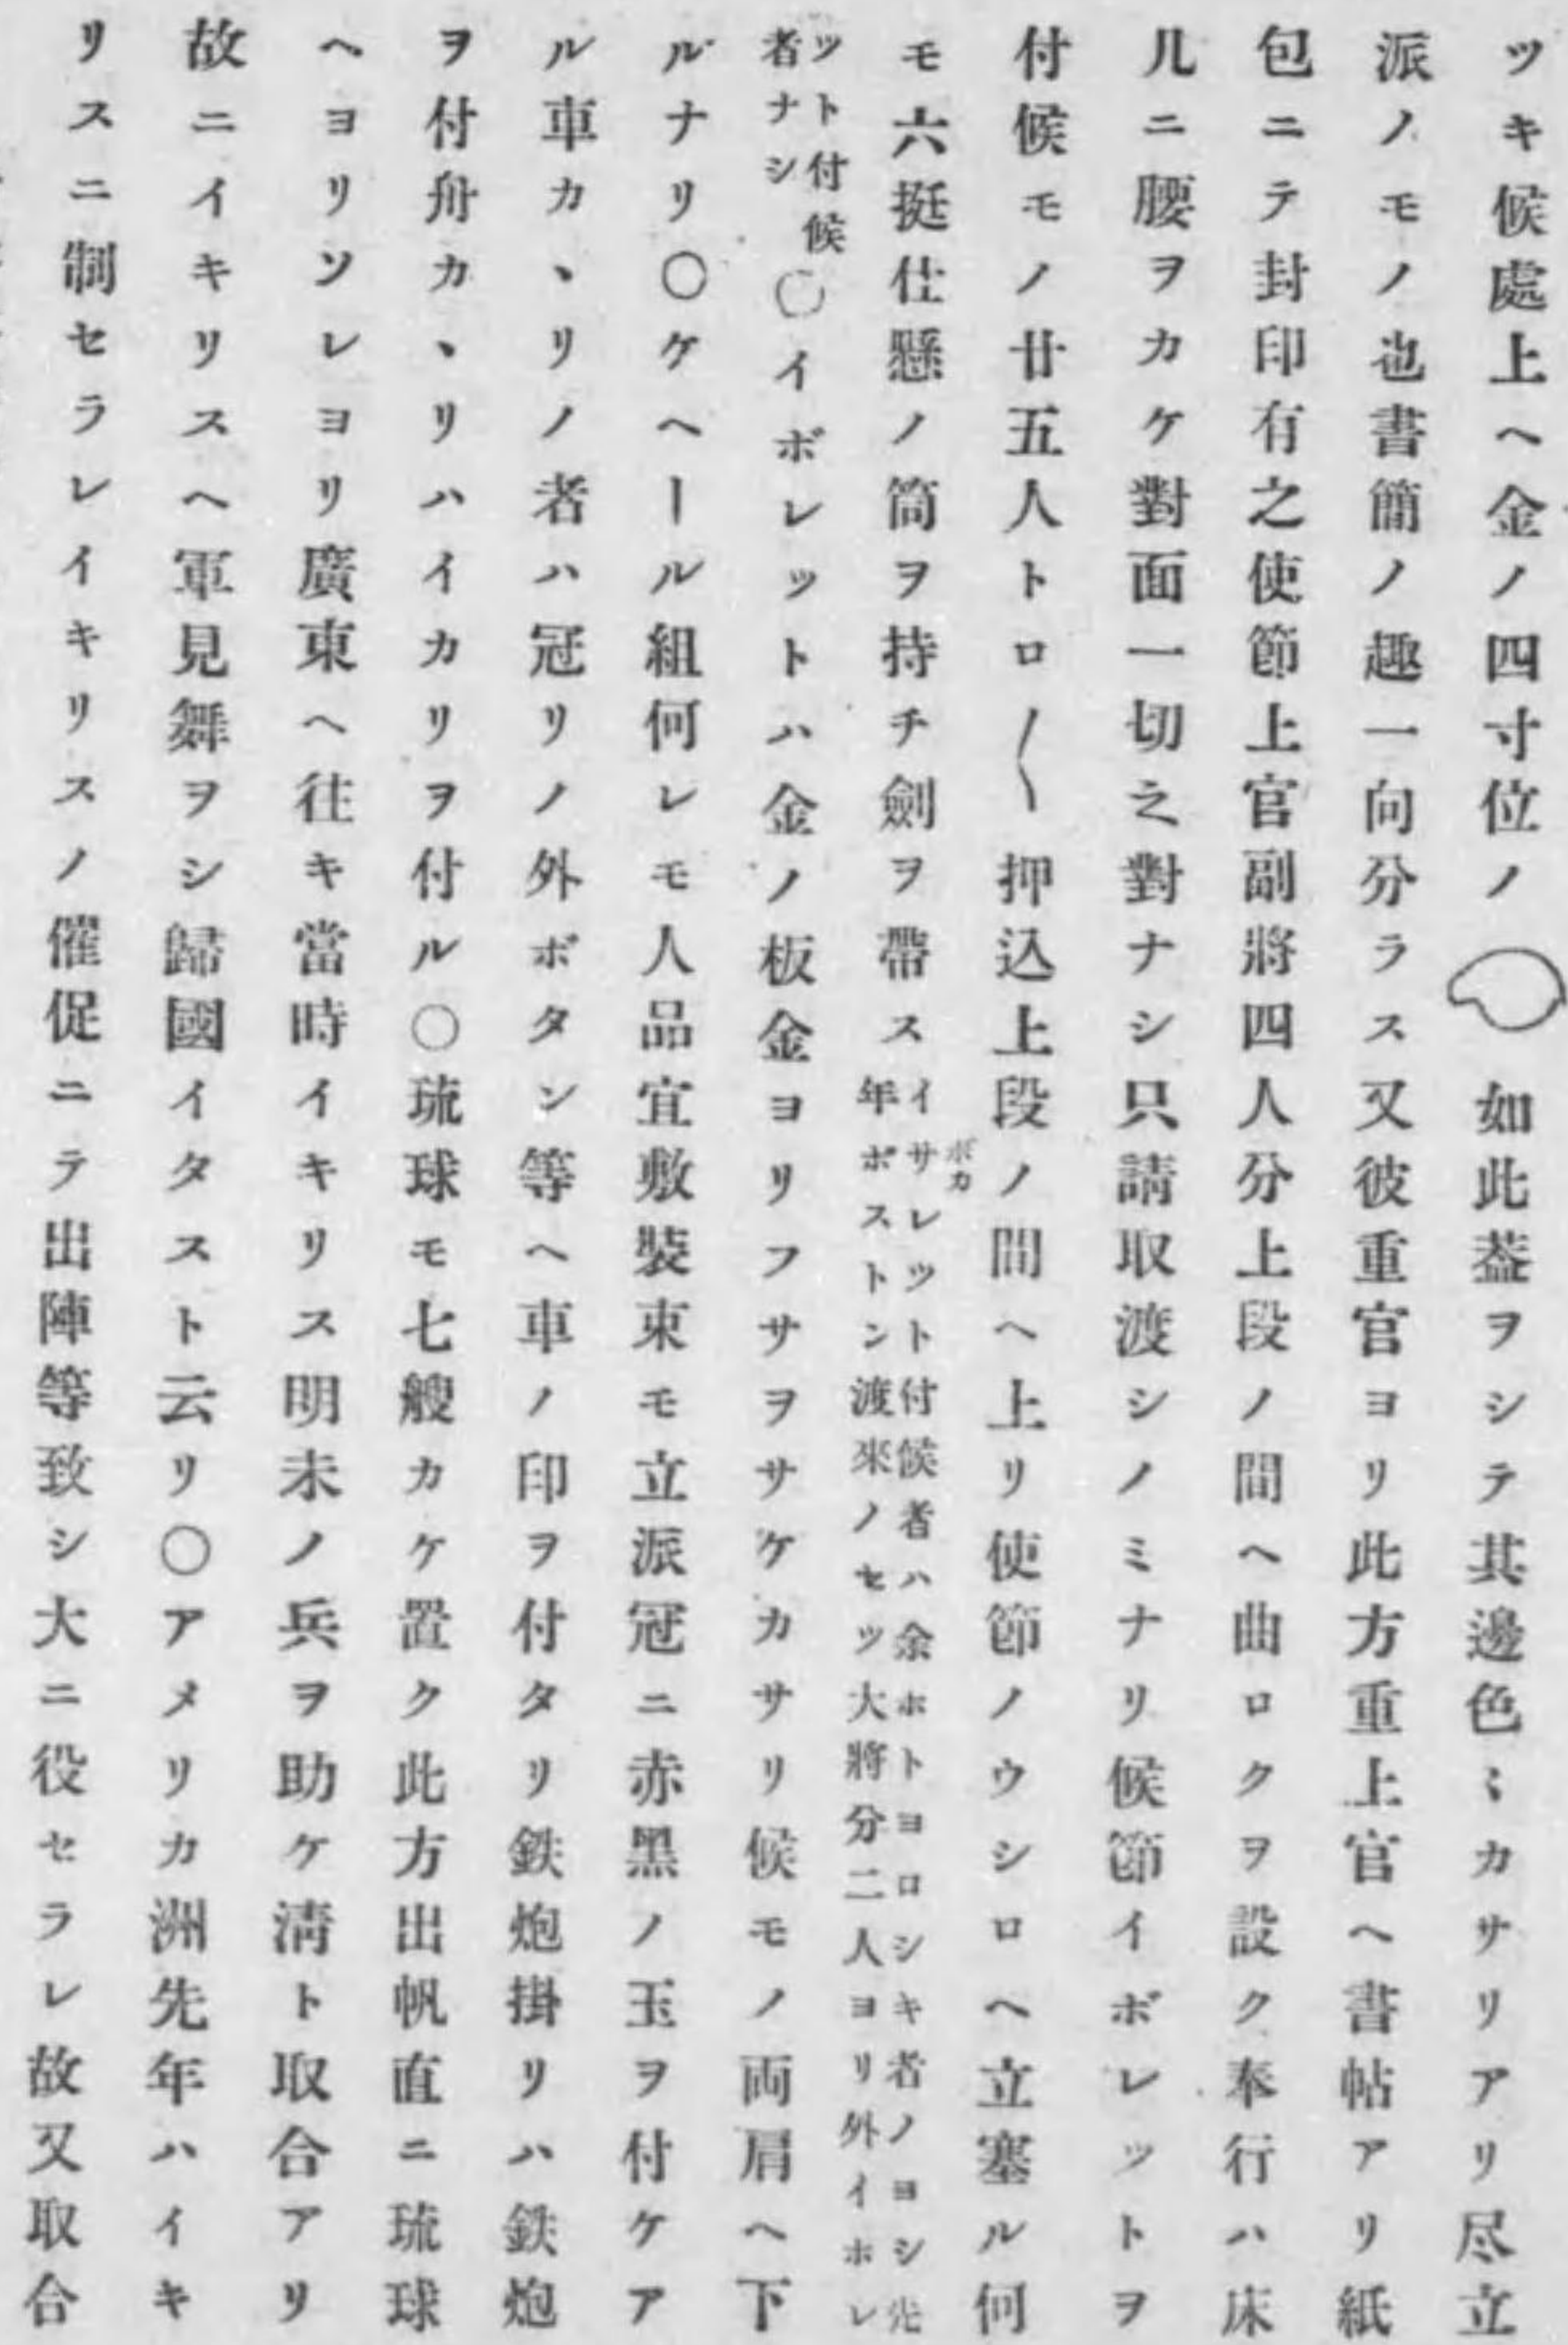 ツキ候處上ヘ金ノ四寸位ノ如此葢ヲシテ其邊色〻カサリアリ尽立
派ノモノ也書簡ノ趣一向分ラス又彼重官ヨリ此方重上官ヘ書帖アリ紙
包ニテ封印有之使節上官副將四人分上段ノ間ヘ曲ロクヲ設ク奉行ハ床
几ニ腰ヲカケ對面一切之對ナシ只請取渡シノミナリ候節イボレットヲ
付候モノ廿五人トロ〳〵押込上段ノ間ヘ上リ使節ノウシロヘ立塞ル何
モ六挺仕懸ノ筒ヲ持チ劍ヲ帶ス
ボカ
イサレット付候者ハ余ホトヨロシキ者ノヨシ先
年ボストン渡來ノセツ大將分二人ヨリ外イホレ
ット付候
者ナシ
〇イボレットハ金ノ板金ヨリフサヲサケカサリ候モノ両肩ヘ下
ルナリ〇ケヘール組何レモ人品宜敷裝束モ立派冠ニ赤黑ノ玉ヲ付ケア
ル車カヽリノ者ハ冠リノ外ボタン等ヘ車ノ印ヲ付タリ鉄炮掛リハ鉄炮
ヲ付舟カヽリハイカリヲ付ル〇琉球モ七艘カケ置ク此方出帆直ニ琉球
ヘヨリソレヨリ廣東ヘ往キ當時イキリス明未ノ兵ヲ助ケ淸ト取合アリ
故ニイキリスヘ軍見舞ヲシ歸國イタスト云リ〇アメリカ洲先年ハイキ
リスニ制セラレイキリスノ催促ニテ出陣等致シ大ニ役セラレ故又取合